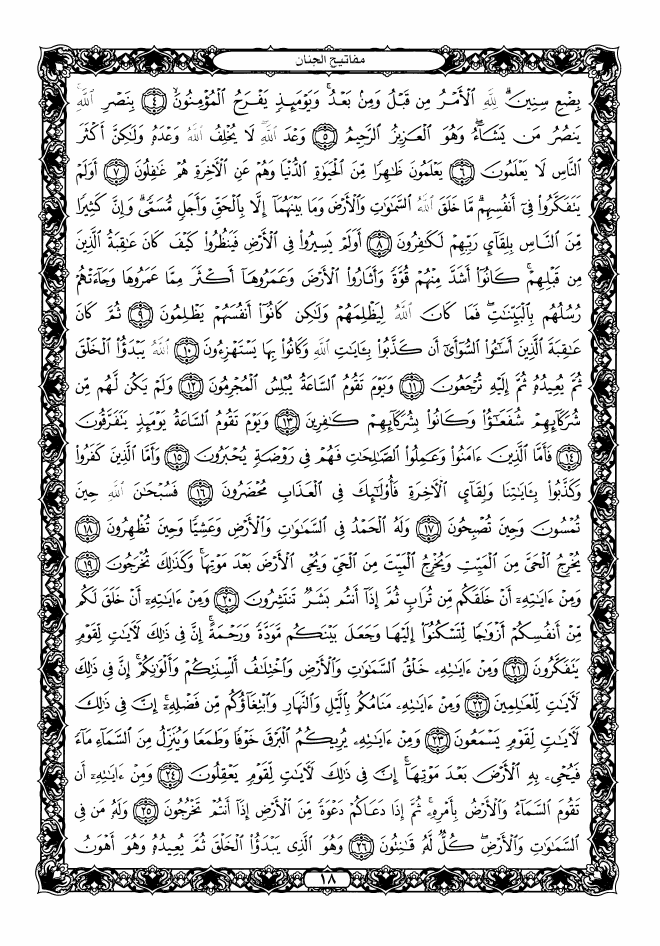 مفاتيح الجنان
بِضْعِ سِنِينَۗ لِلَّهِ ٱلْأَمْرُ مِن قَبْلُ وَمِنۢ بَعْدُۚ وَيَوْمَئِذٍ يَفْرَحُ ٱلْمُؤْمِنُونَ ۝٤ بِنَصْرِ ٱللَّهِۚ
يَنصُرُ مَن يَشَآءُۖ وَهُوَ ٱلْعَزِيزُ ٱلرَّحِيمُ ۝٥ وَعْدَ ٱللَّهِۖ لَا يُخْلِفُ ٱللَّهُ وَعْدَهُۥ وَلَٰكِنَّ أَكْثَرَ
ٱلنَّاسِ لَا يَعْلَمُونَ ۝٦ يَعْلَمُونَ ظَٰهِرًا مِّنَ ٱلْحَيَوٰةِ ٱلدُّنْيَا وَهُمْ عَنِ ٱلْأٓخِرَةِ هُمْ غَٰفِلُونَ ۝٧ أَوَلَمْ
يَتَفَكَّرُوا۟ فِىٓ أَنفُسِهِمۗ مَّا خَلَقَ ٱللَّهُ ٱلسَّمَٰوَٰتِ وَٱلْأَرْضَ وَمَا بَيْنَهُمَآ إِلَّا بِٱلْحَقِّ وَأَجَلٍ مُّسَمًّىۗ وَإِنَّ كَثِيرًا
مِّنَ ٱلنَّاسِ بِلِقَآئِ رَبِّهِمْ لَكَٰفِرُونَ ۝٨ أَوَلَمْ يَسِيرُوا۟ فِى ٱلْأَرْضِ فَيَنظُرُوا۟ كَيْفَ كَانَ عَٰقِبَةُ ٱلَّذِينَ
مِن قَبْلِهِمْۚ كَانُوٓا۟ أَشَدَّ مِنْهُمْ قُوَّةً وَأَثَارُوا۟ ٱلْأَرْضَ وَعَمَرُوهَآ أَكْثَرَ مِمَّا عَمَرُوهَا وَجَآءَتْهُمْ
رُسُلُهُم بِٱلْبَيِّنَٰتِۖ فَمَا كَانَ ٱللَّهُ لِيَظْلِمَهُمْ وَلَٰكِن كَانُوٓا۟ أَنفُسَهُمْ يَظْلِمُونَ ۝٩ ثُمَّ كَانَ
عَٰقِبَةَ ٱلَّذِينَ أَسَٰٓـُٔوا۟ ٱلسُّوٓأَىٰٓ أَن كَذَّبُوا۟ بِـَٔايَٰتِ ٱللَّهِ وَكَانُوا۟ بِهَا يَسْتَهْزِءُونَ ۝١٠ ٱللَّهُ يَبْدَؤُا۟ ٱلْخَلْقَ
ثُمَّ يُعِيدُهُۥ ثُمَّ إِلَيْهِ تُرْجَعُونَ ۝١١ وَيَوْمَ تَقُومُ ٱلسَّاعَةُ يُبْلِسُ ٱلْمُجْرِمُونَ ۝١٢ وَلَمْ يَكُن لَّهُم مِّن
شُرَكَآئِهِمْ شُفَعَٰٓؤُا۟ وَكَانُوا۟ بِشُرَكَآئِهِمْ كَٰفِرِينَ ۝١٣ وَيَوْمَ تَقُومُ ٱلسَّاعَةُ يَوْمَئِذٍ يَتَفَرَّقُونَ
۝١٤ فَأَمَّا ٱلَّذِينَ ءَامَنُوا۟ وَعَمِلُوا۟ ٱلصَّٰلِحَٰتِ فَهُمْ فِى رَوْضَةٍ يُحْبَرُونَ ۝١٥ وَأَمَّا ٱلَّذِينَ كَفَرُوا۟
وَكَذَّبُوا۟ بِـَٔايَٰتِنَا وَلِقَآئِ ٱلْأٓخِرَةِ فَأُو۟لَٰٓئِكَ فِى ٱلْعَذَابِ مُحْضَرُونَ ۝١٦ فَسُبْحَٰنَ ٱللَّهِ حِينَ
تُمْسُونَ وَحِينَ تُصْبِحُونَ ۝١٧ وَلَهُ ٱلْحَمْدُ فِى ٱلسَّمَٰوَٰتِ وَٱلْأَرْضِ وَعَشِيًّا وَحِينَ تُظْهِرُونَ ۝١٨
يُخْرِجُ ٱلْحَىَّ مِنَ ٱلْمَيِّتِ وَيُخْرِجُ ٱلْمَيِّتَ مِنَ ٱلْحَىِّ وَيُحْىِ ٱلْأَرْضَ بَعْدَ مَوْتِهَاۚ وَكَذَٰلِكَ تُخْرَجُونَ ۝١٩
وَمِنْ ءَايَٰتِهِۦٓ أَنْ خَلَقَكُم مِّن تُرَابٍ ثُمَّ إِذَآ أَنتُم بَشَرٌ تَنتَشِرُونَ ۝٢٠ وَمِنْ ءَايَٰتِهِۦٓ أَنْ خَلَقَ لَكُم
مِّنْ أَنفُسِكُمْ أَزْوَٰجًا لِّتَسْكُنُوٓا۟ إِلَيْهَا وَجَعَلَ بَيْنَكُم مَّوَدَّةً وَرَحْمَةًۚ إِنَّ فِى ذَٰلِكَ لَأٓيَٰتٍ لِّقَوْمٍ
يَتَفَكَّرُونَ ۝٢١ وَمِنْ ءَايَٰتِهِۦ خَلْقُ ٱلسَّمَٰوَٰتِ وَٱلْأَرْضِ وَٱخْتِلَٰفُ أَلْسِنَتِكُمْ وَأَلْوَٰنِكُمْۚ إِنَّ فِى ذَٰلِكَ
لَأٓيَٰتٍ لِّلْعَٰلِمِينَ ۝٢٢ وَمِنْ ءَايَٰتِهِۦ مَنَامُكُم بِٱلَّيْلِ وَٱلنَّهَارِ وَٱبْتِغَآؤُكُم مِّن فَضْلِهِۦٓۚ إِنَّ فِى ذَٰلِكَ
لَأٓيَٰتٍ لِّقَوْمٍ يَسْمَعُونَ ۝٢٣ وَمِنْ ءَايَٰتِهِۦ يُرِيكُمُ ٱلْبَرْقَ خَوْفًا وَطَمَعًا وَيُنَزِّلُ مِنَ ٱلسَّمَآءِ مَآءً
فَيُحْىِۦ بِهِ ٱلْأَرْضَ بَعْدَ مَوْتِهَآۚ إِنَّ فِى ذَٰلِكَ لَأٓيَٰتٍ لِّقَوْمٍ يَعْقِلُونَ ۝٢٤ وَمِنْ ءَايَٰتِهِۦٓ أَن
تَقُومَ ٱلسَّمَآءُ وَٱلْأَرْضُ بِأَمْرِهِۦۚ ثُمَّ إِذَا دَعَاكُمْ دَعْوَةً مِّنَ ٱلْأَرْضِ إِذَآ أَنتُمْ تَخْرُجُونَ ۝٢٥ وَلَهُۥ مَن فِى
ٱلسَّمَٰوَٰتِ وَٱلْأَرْضِۖ كُلٌّ لَّهُۥ قَٰنِتُونَ ۝٢٦ وَهُوَ ٱلَّذِى يَبْدَؤُا۟ ٱلْخَلْقَ ثُمَّ يُعِيدُهُۥ وَهُوَ أَهْوَنُ
١٨